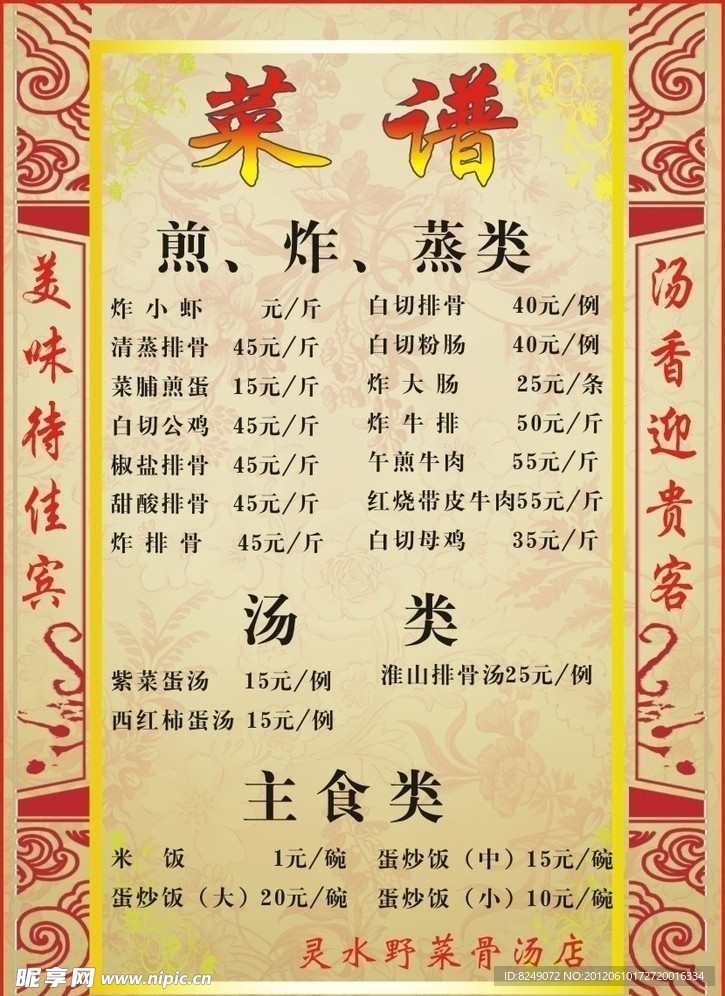 菜 谱
煎、炸、蒸类
炸小虾 元/斤 白切排骨 40元/例
清蒸排骨 45元/斤 白切粉肠 40元/例
菜脯煎蛋 15元/斤 炸大肠 25元/条
白切公鸡 45元/斤 炸牛排 50元/斤
椒盐排骨 45元/斤 午煎牛肉 55元/斤
甜酸排骨 45元/斤 红烧带皮牛肉55元/斤
炸排骨 45元/斤 白切母鸡 35元/斤
汤 类
紫菜蛋汤 15元/例 淮山排骨汤25元/例
西红柿蛋汤 15元/例
主食类
米 饭 1元/碗 蛋炒饭（中）15元/碗
蛋炒饭（大）20元/碗 蛋炒饭（小）10元/碗
灵水野菜骨汤店
美味待佳宾
汤香迎贵客
昵享网 www.nipic.cn
ID:8249072 NO:20120610172720016334